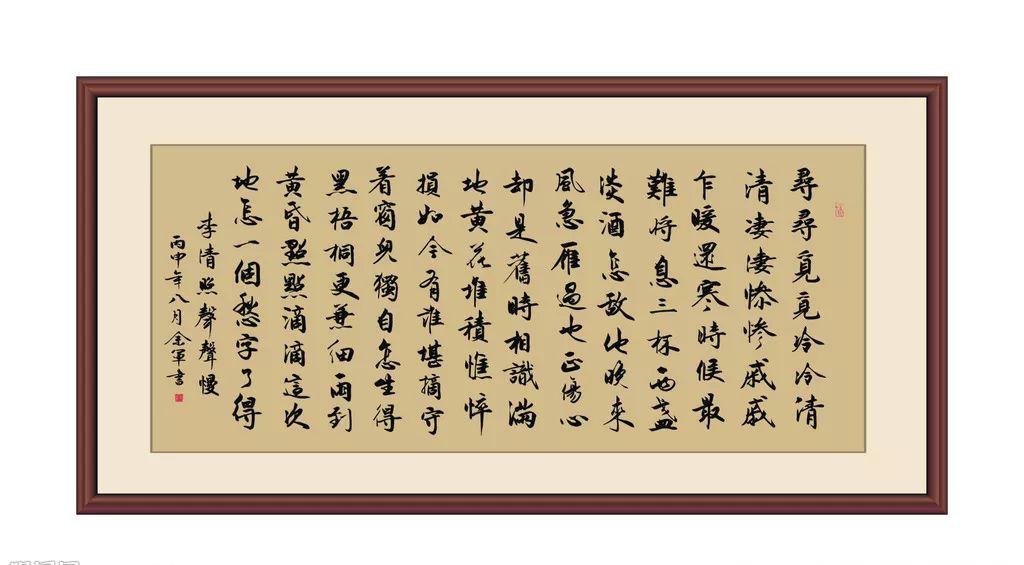 尋尋覓覓冷冷清
清凄凄惨惨戚戚
乍暖還寒時候最
難将息三杯兩盞
淡酒怎敵他晚来
風急雁過也正傷心
却是舊時相識滿
地黄花堆積憔悴
損如今有誰堪摘守
着窗兒獨自怎生得
黑梧桐更兼細雨到
黄昏點點滴滴這次
地怎一個愁字了得
李清照聲聲慢
丙申年八月金軍書